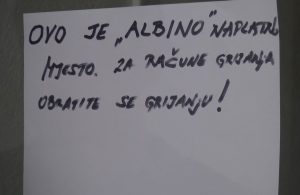 OVO JE „ALBINO" NAPLATNO
MJESTO. ZA RAČUNE GRIJANJA
OBRATITE SE GRIJANJU!